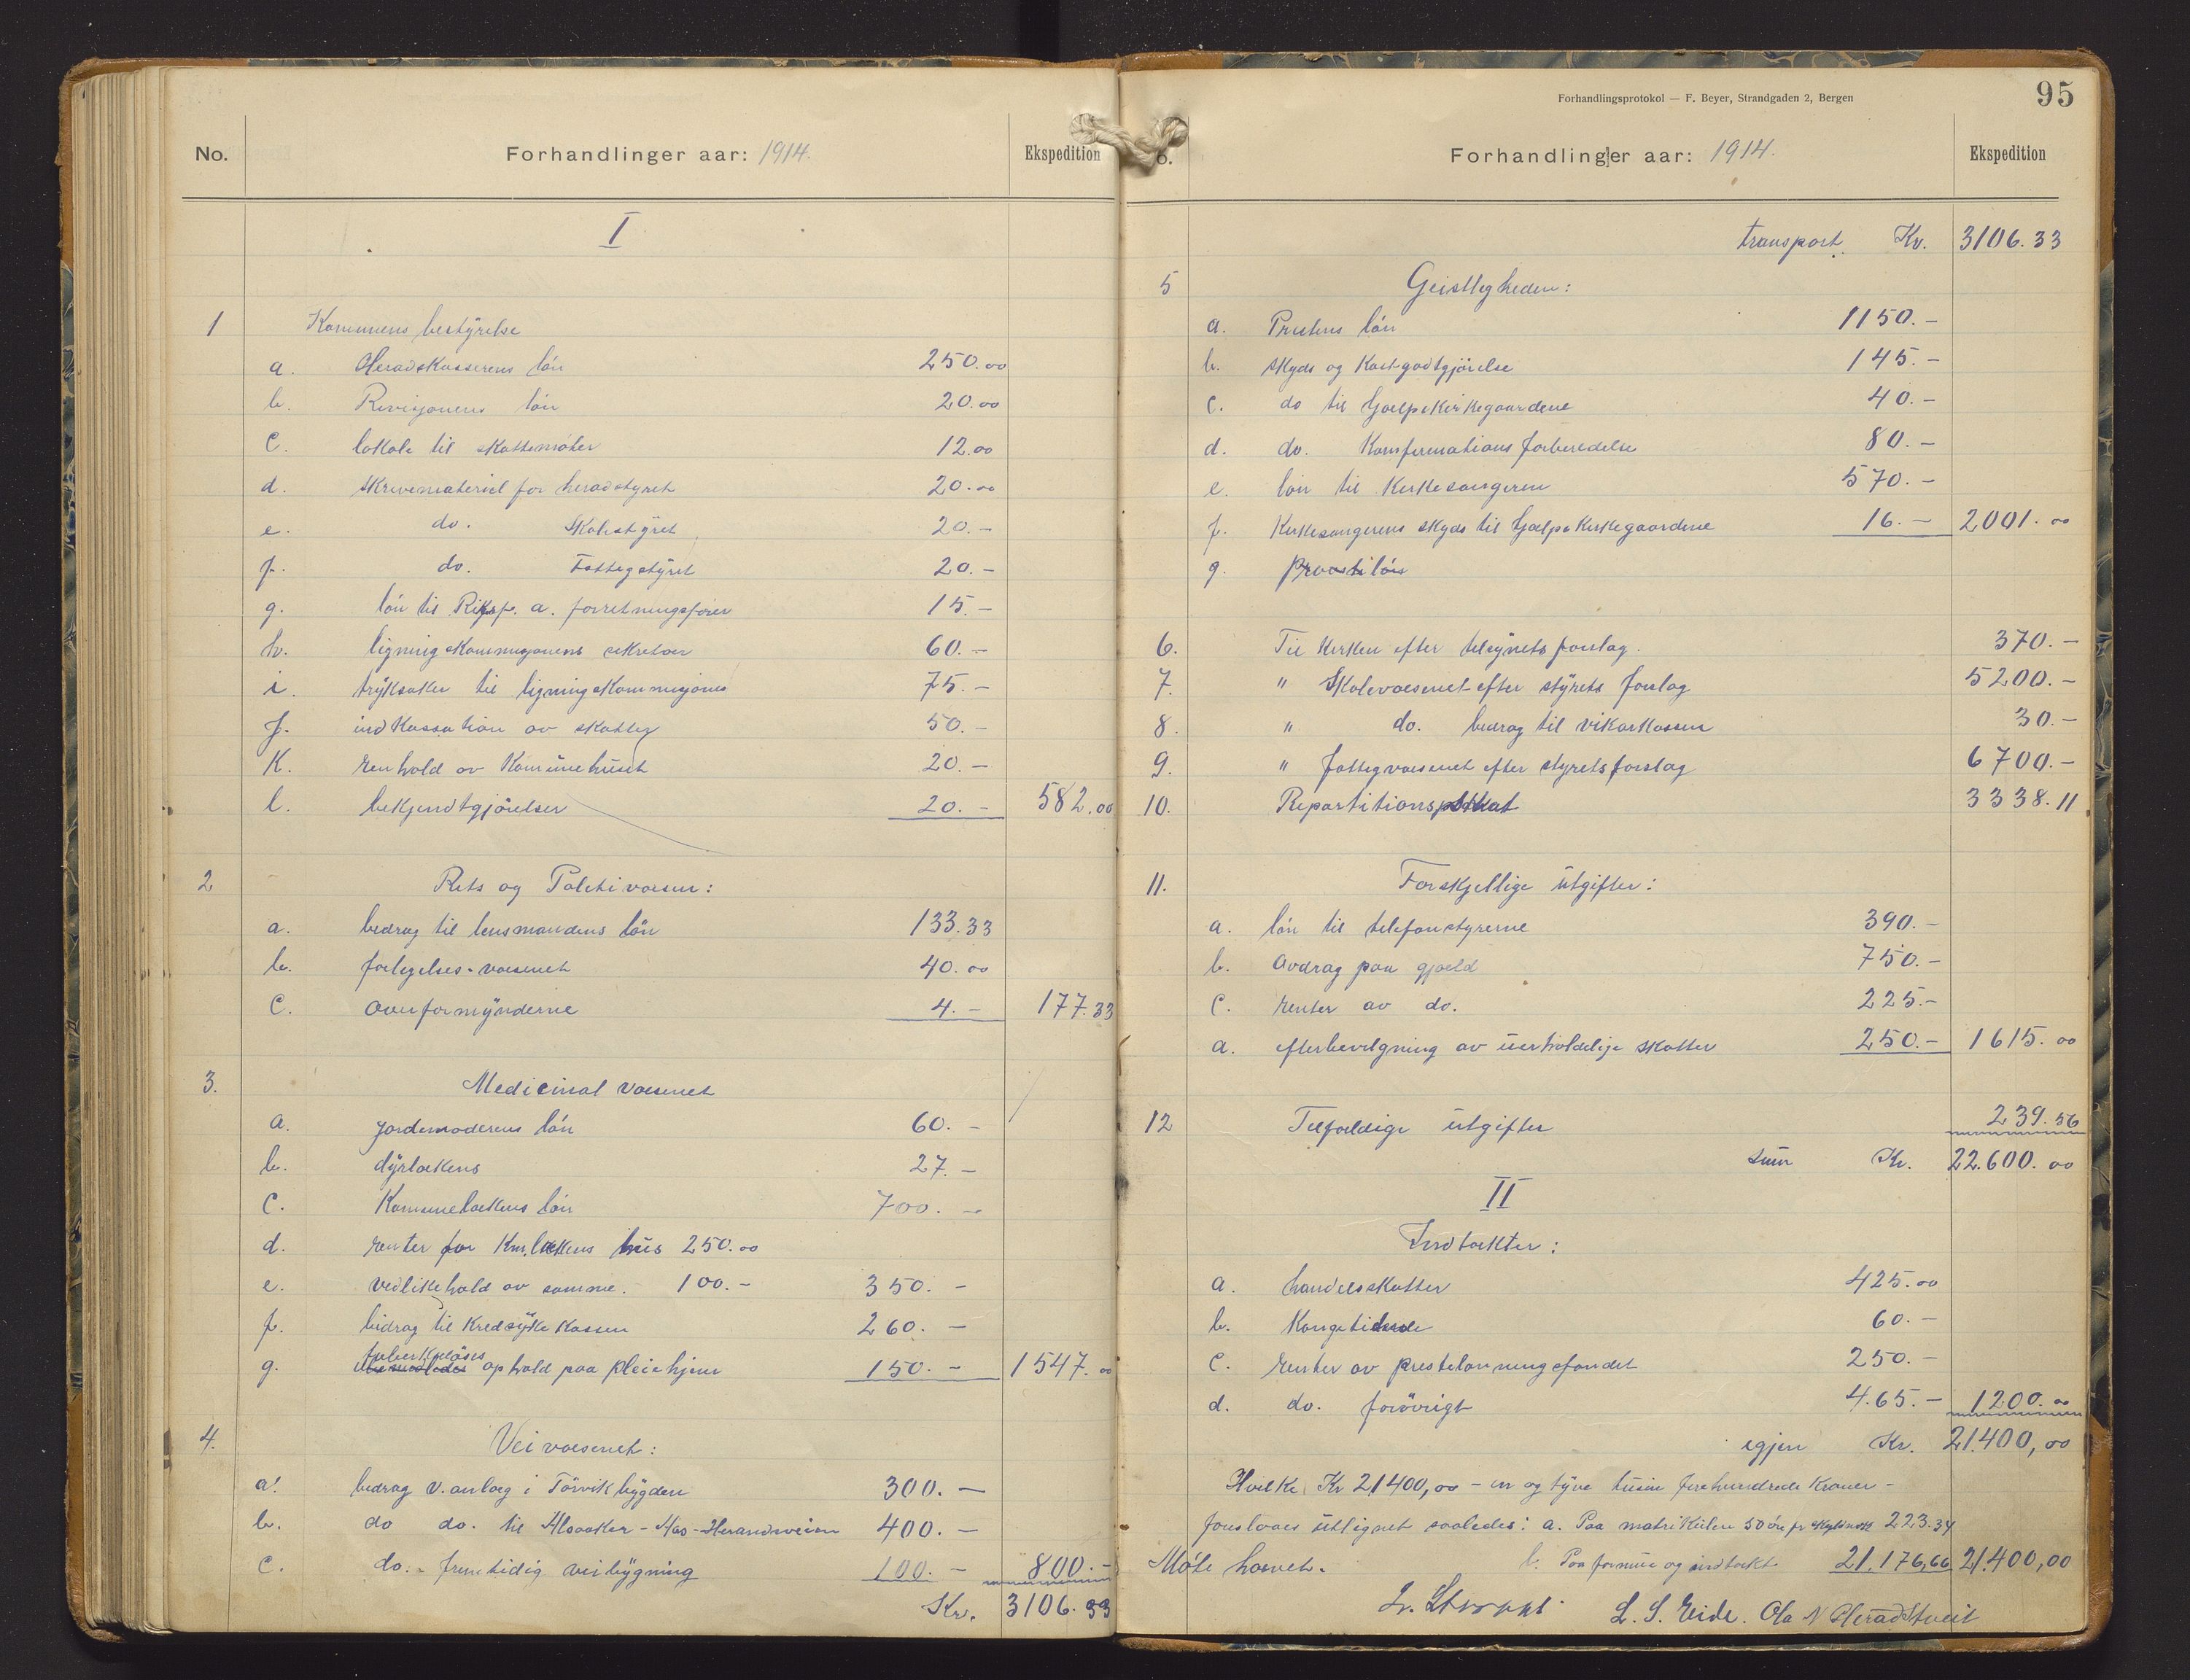 No. Forhandlinger aar: 1914. Ekspedition
I
1 Kommunens bestÿrelse
a. Heradskasserens lön 250.00
b. Revisjonens lön 20.00
c. lokale til skattemöter 12.00
d. skrivemateriel for heradstyret 20.00
e. do. Skolestÿret 20.-
f. do. Fattigstÿret 20.-
g. lön til Riksf. a. forretningsförer 15.-
h. ligningskommisjonens sekretær 60.-
i. trÿksaker til ligningskommisjonen 75.-
j. indkassation av skatter 50.-
k. renhold av Kommünehüset 20.-
l. bekjendtgjörelser 20.- 582.00
2 Rets og Politivæsen:
a. bedrag til lensmandens lön 133.33
b. forlegelses-væsenet 40.00
c. overformÿnderne 4.- 177.33
3. Medicinal væsenet
a. jordemoderens lön 60.-
b. dÿrlækens 27.-
c. Kommunelækens lön 700.-
d. renter for Km.lækens hüs 250.00
e. vedlikehold av samme. 100.- 350.-
f. bidrag til Kredsÿkekassen 260.-
g. tuberkuløses ophold paa pleiehjem 150.- 1547.00
4. Veivæsenet:
a. bedrag v. anlæg i Törvikbÿgden 300.-
b. do do. til Alsaaker-Aas-Herandsveien 400.-
c. do. - fremtidig veibÿgning 100.- 800.-
Kr. 3106.33
Forhandlingsprotokol — F. Beyer, Strandgaden 2, Bergen
95
No. Forhandlinger aar: 1914. Ekspedition
transport. Kr. 3106.33
5 Geistligheden:
a. Prestens lön 1150.-
b. skyds og Kostgodtgjörelse 145.-
c. do til hjælpekirkegaardene 40.-
d. do. Konfirmations forberedelse 80.-
e. lön til Kirkesangeren 570.-
f. Kirkesangerens skyds til hjælpekirkegaardene 16.- 2001.00
g. Provstilön
6. Til Kirken efter tilsÿnets forslag. 370.-
7. " Skolevæsenet efter stÿrets forslag 5200.-
8. " do. bedrag til vikarkassen 30.-
9. " fattigvæsenet efter styrets forslag 6700.-
10. Repartitionsskat 3338.11
11. Forskjellige ütgifter:
a. lön til telefonstyrerne 390.-
b. Avdrag paa gjæld 750.-
c. renter av do. 225.-
d. efterbevilgning av üerholdelige skatter 250.- 1615.00
12 Tilfældige ütgifter 239.56
süm Kr. 22.600.00
II
Indtækter:
a. handelsskatter 425.00
b. Kongetiende 60.-
c. renter av prestelönningsfondet 250.-
d. do. forövrigt 465.- 1200.00
egjen Kr. 21.400,00
Hvilke Kr 21400,00 - en og tÿve tüsen firehundrede Kroner -
foreslaaes ütlignet saaledes: a. Paa matrikülen 50 öre pr skyldmark 223.34
b. Paa formüe og indtækt 21.176,66 21.400,00
Möte hævet.
L. S. Eide. Ola N Heradstveit